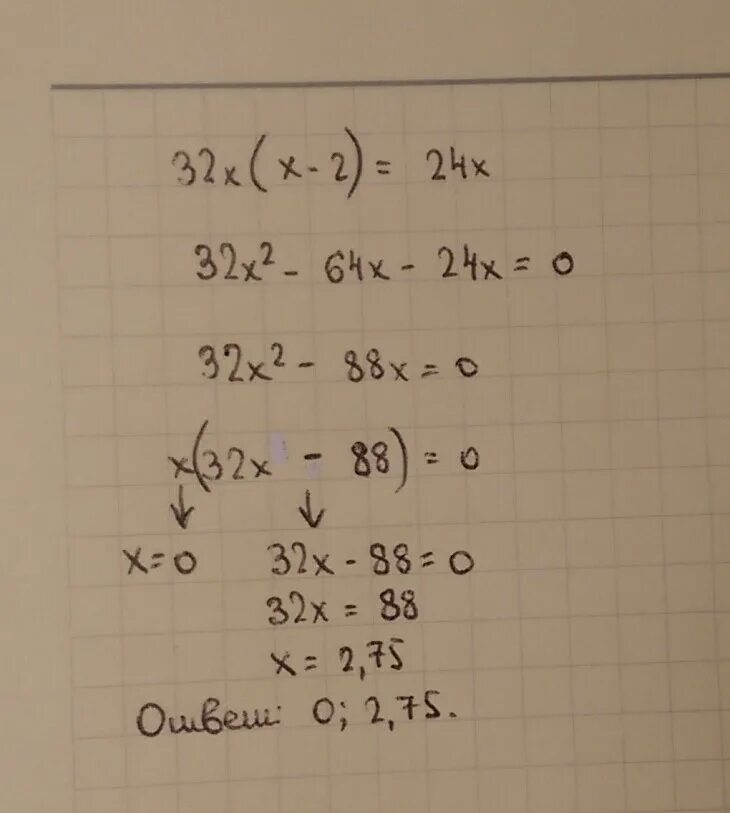 32x(x-2) = 24x
32x² - 64x - 24x = 0
32x² - 88x = 0
x(32x - 88) = 0
↓ ↓
x=0 32x - 88 = 0
32x = 88
x = 2,75
Ответ: 0; 2,75.